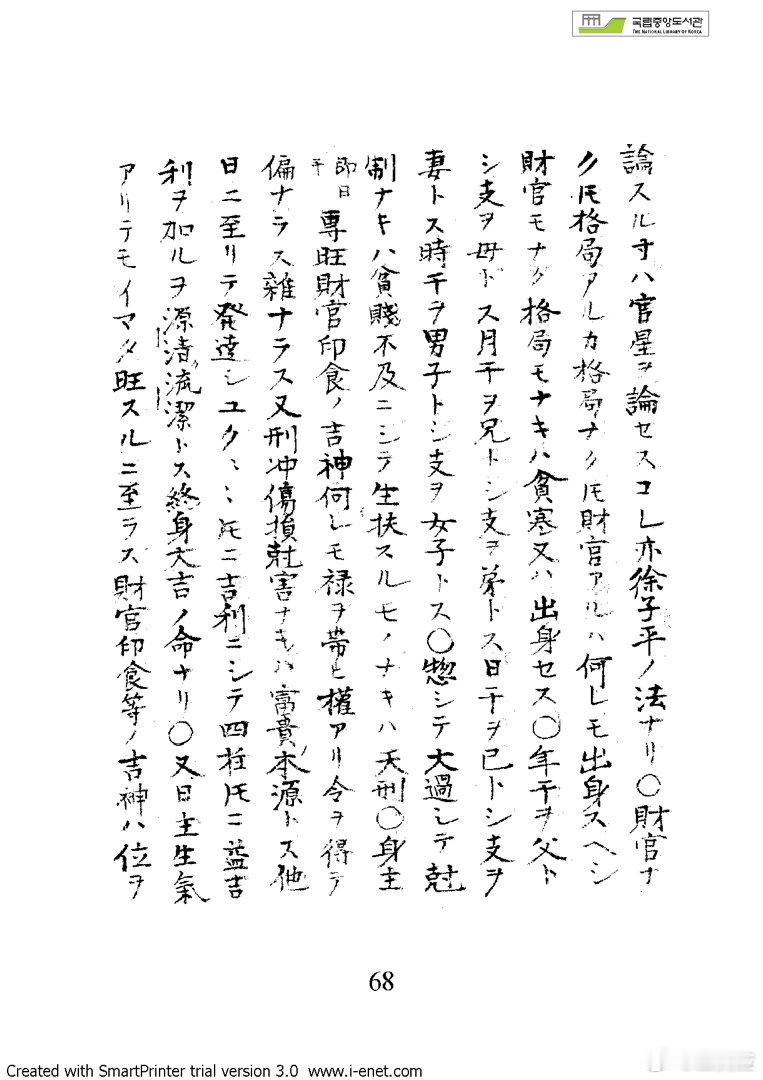 국립중앙도서관
THE NATIONAL LIBRARY OF KOREA
論スル寸ハ官星ヲ論セスコレ亦徐子平ノ法ナリ〇財官ナ
ク𪜈格局アルカ格局ナク𪜈財官アルハ何レモ出身スヘシ
財官モナク格局モナキハ貧寒又ハ出身セス〇年干ヲ父ト
シ支ヲ母ドス月干ヲ兄トシ支ヲ弟トス日干ヲ己トシ支ヲ
妻トス時干ヲ男子トシ支ヲ女子トス〇惣シテ大過シテ尅
制ナキハ貧賤不及ニシテ生扶スルモノナキハ夭刑〇身主
即日干専旺財官印食ノ吉神何レモ禄ヲ帯ヒ權アリ令ヲ得テ
偏ナラス雜ナラス又刑冲傷損尅害ナキハ富貴ノ本源トス他
日ニ至リテ発達シユク〻𪜈ニ吉利ニシテ四柱𪜈ニ益吉
利ヲ加ルヲ源清流潔トス終身大吉ノ命ナリ〇又日主生氣
アリテモイマタ旺スルニ至ラス財官印食等ノ吉神ハ位ヲ
68
Created with SmartPrinter trial version 3.0 www.i-enet.com